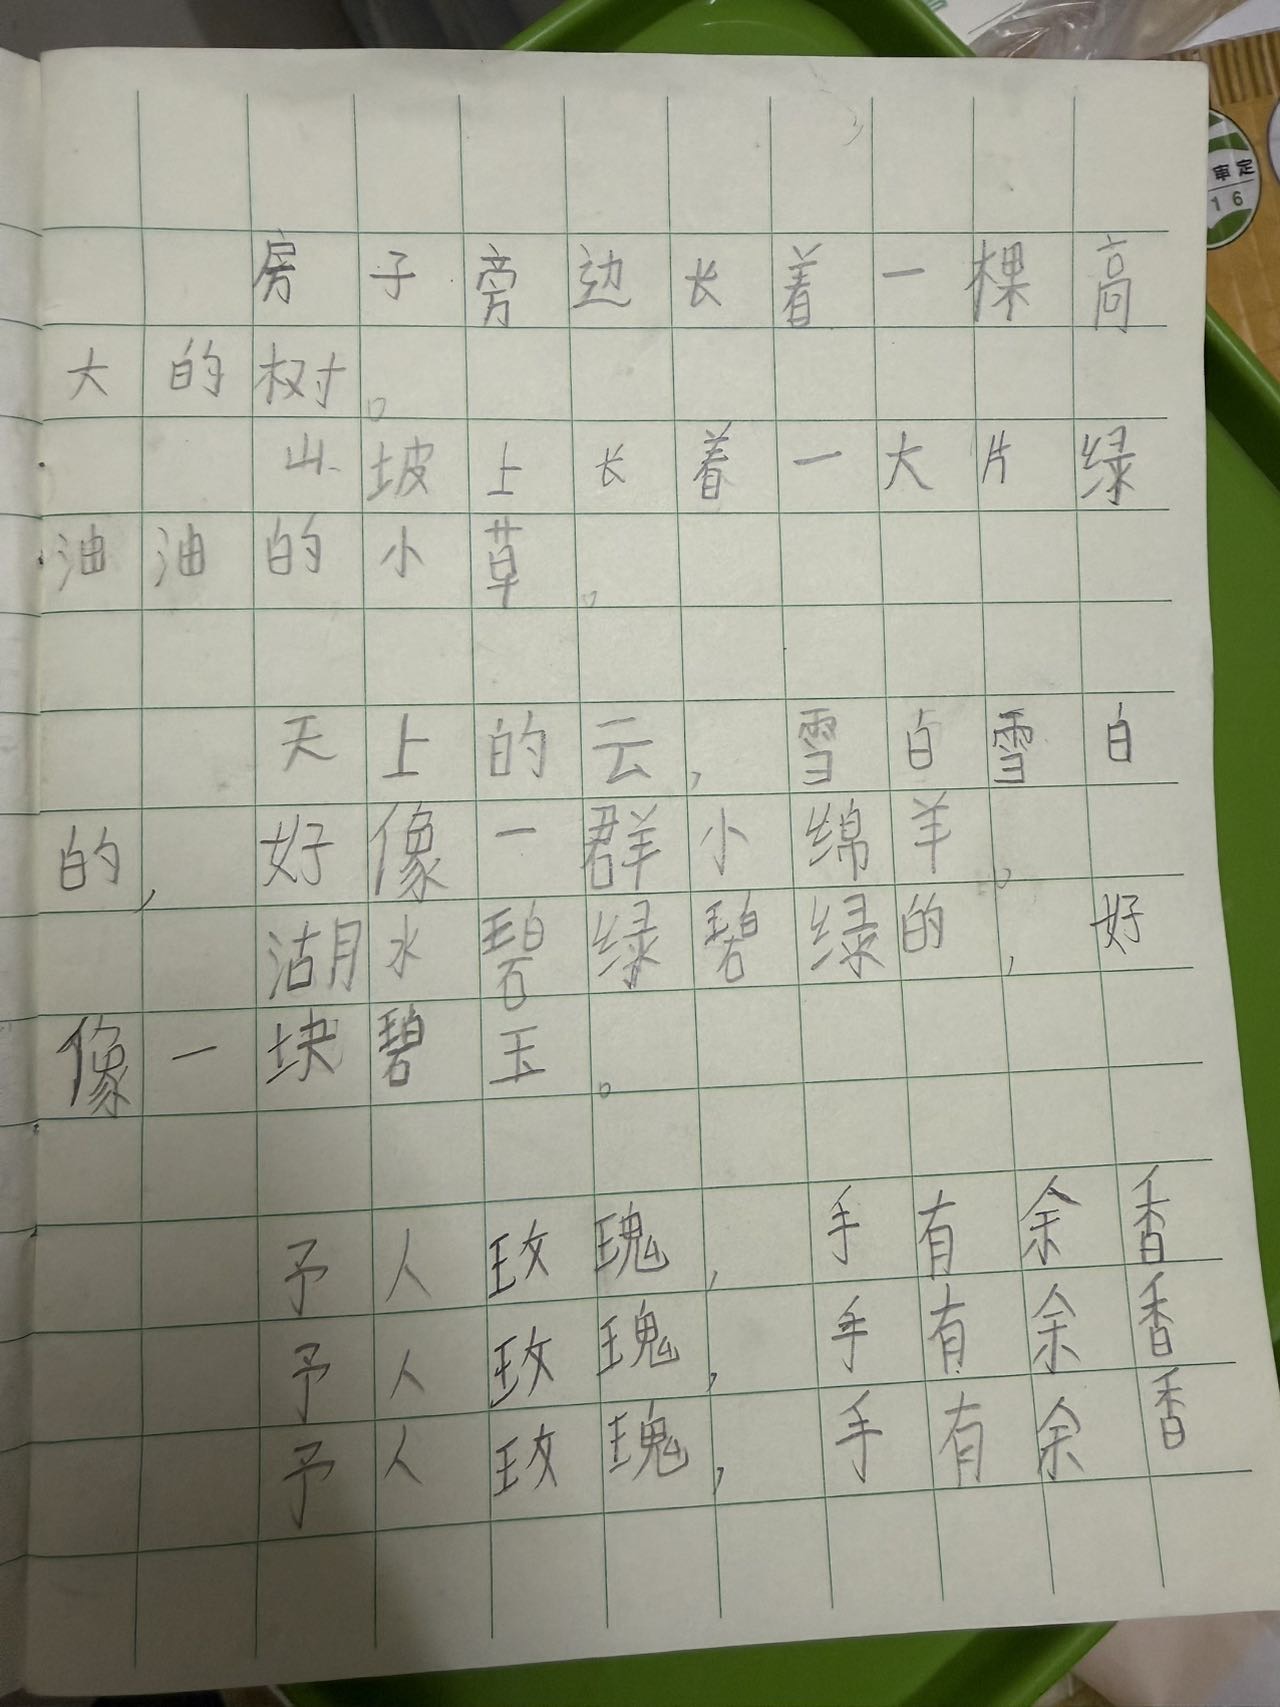 房子旁边长着一棵高
大的树。
山坡上长着一大片绿
油油的小草。
天上的云，雪白雪白
的，好像一群小绵羊。
湖水碧绿碧绿的，好
像一块碧玉。
予人玫瑰，手有余香
予人玫瑰，手有余香
予人玫瑰，手有余香
审定
16